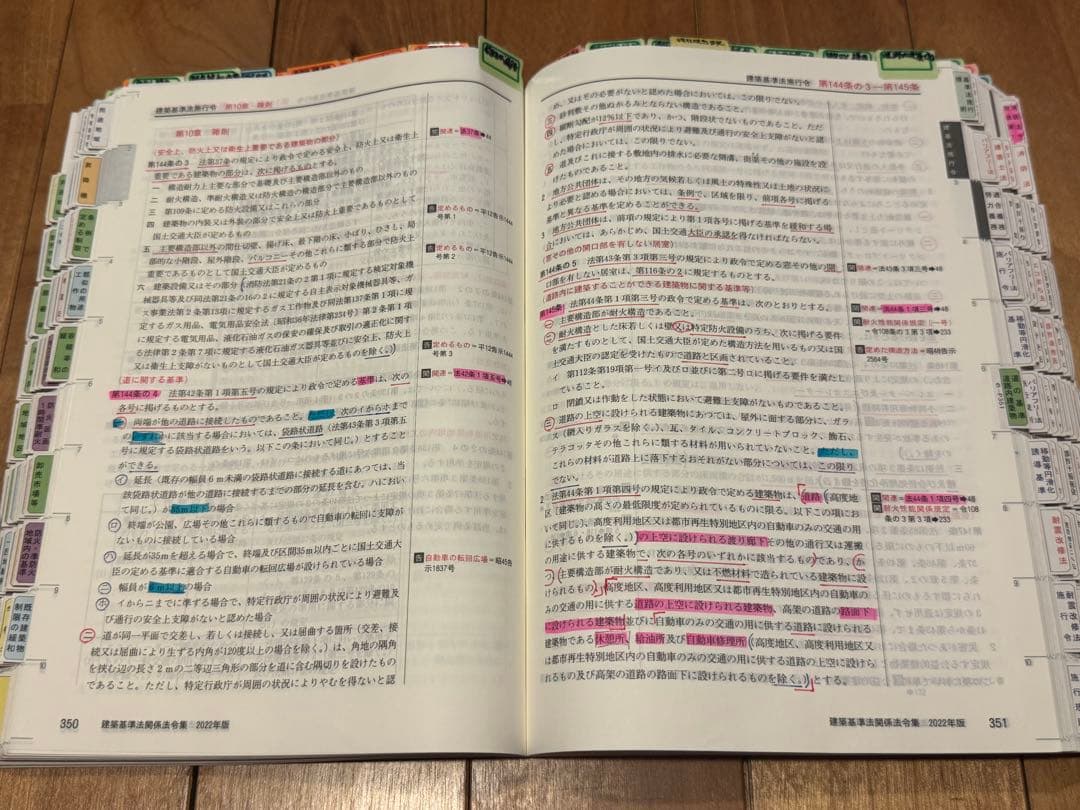 建築基準法施行令 第10章 雑則
第10章 雑則
(安全上、防火上又は衛生上重要である建築物の部分)
第144条の3 法第37条の規定により政令で定める安全上、防火上又は衛生上
重要である建築物の部分は、次に掲げるものとする。
一 構造耐力上主要な部分で基礎及び主要構造部以外のもの
二 耐火構造、準耐火構造又は防火構造の構造部分で主要構造部以外のもの
三 第109条に定める防火設備又はこれらの部分
四 建築物の内装又は外装の部分で安全上又は防火上重要であるものとして
国土交通大臣が定めるもの
五 主要構造部以外の間仕切壁、揚げ床、最下階の床、小ばり、ひさし、局
部的な小階段、屋外階段、バルコニーその他これらに類する部分で防火上
重要であるものとして国土交通大臣が定めるもの
六 建築設備又はその部分(消防法第21条の2第1項に規定する検定対象機
械器具等及び同法第21条の16の2に規定する自主表示対象機械器具等、ガ
ス事業法第2条第13項に規定するガス工作物及び同法第137条第1項に規
定するガス用品、電気用品安全法(昭和36年法律第234号)第2条第1項
に規定する電気用品、液化石油ガスの保安の確保及び取引の適正化に関す
る法律第2条第7項に規定する液化石油ガス器具等並びに安全上、防火上
又は衛生上支障がないものとして国土交通大臣が定めるものを除く。)
(道に関する基準)
第144条の4 法第42条第1項第五号の規定により政令で定める基準は、次の
各号に掲げるものとする。
一 両端が他の道路に接続したものであること。ただし、次のイからホまで
のいずれかに該当する場合においては、袋路状道路(法第43条第3項第五
号に規定する袋路状道路をいう。以下この条において同じ。)とすること
ができる。
イ 延長(既存の幅員6m未満の袋路状道路に接続する道にあつては、当
該袋路状道路が他の道路に接続するまでの部分の延長を含む。ハにおい
て同じ。)が35m以下の場合
ロ 終端が公園、広場その他これらに類するもので自動車の転回に支障が
ないものに接続している場合
ハ 延長が35mを超える場合で、終端及び区間35m以内ごとに国土交通大
臣の定める基準に適合する自動車の転回広場が設けられている場合
ニ 幅員が6m以上の場合
ホ イからニまでに準ずる場合で、特定行政庁が周囲の状況により避難及
び通行の安全上支障がないと認めた場合
二 道が同一平面で交差し、若しくは接続し、又は屈曲する箇所(交差、接
続又は屈曲により生ずる内角が120度以上の場合を除く。)は、角地の隅角
を挟む辺の長さ2mの二等辺三角形の部分を道に含む隅切りを設けたもの
であること。ただし、特定行政庁が周囲の状況によりやむを得ないと認
関連=法37条➡44
告 定めるもの=平12告示1444
号第1
告 定めるもの=平12告示1444
号第2
告 定めるもの=平12告示1444
号第3
関 関連=法42条1項五号➡46
告 自動車の転回広場=昭45告
示1837号
350 建築基準法関係法令集 2022年版
建築基準法施行令 第144条の3―第145条
め、又はその必要がないと認めた場合においては、この限りでない。
三 砂利敷その他ぬかるみとならない構造であること。
四 縦断勾配が12%以下であり、かつ、階段状でないものであること。ただ
し、特定行政庁が周囲の状況により避難及び通行の安全上支障がないと認
めた場合においては、この限りでない。
五 道及びこれに接する敷地内の排水に必要な側溝、街渠その他の施設を設
けたものであること。
2 地方公共団体は、その地方の気候若しくは風土の特殊性又は土地の状況に
より必要と認める場合においては、条例で、区域を限り、前項各号に掲げる
基準と異なる基準を定めることができる。
3 地方公共団体は、前項の規定により第1項各号に掲げる基準を緩和する場
合においては、あらかじめ、国土交通大臣の承認を得なければならない。
(窓その他の開口部を有しない居室)
第144条の5 法第43条第3項第三号の規定により政令で定める窓その他の開
口部を有しない居室は、第116条の2に規定するものとする。
(道路内に建築することができる建築物に関する基準等)
第145条 法第44条第1項第三号の政令で定める基準は、次のとおりとする。
一 主要構造部が耐火構造であること。
二 耐火構造とした床若しくは壁又は特定防火設備のうち、次に掲げる要件
を満たすものとして、国土交通大臣が定めた構造方法を用いるもの又は国
土交通大臣の認定を受けたもので道路と区画されていること。
イ 第112条第19項第一号イ及びロ並びに第二号ロに掲げる要件を満たし
ていること。
ロ 閉鎖又は作動をした状態において避難上支障がないものであること。
三 道路の上空に設けられる建築物にあつては、屋外に面する部分に、ガラ
ス(網入りガラスを除く。)、瓦、タイル、コンクリートブロック、飾石、
テラコッタその他これらに類する材料が用いられていないこと。ただし、
これらの材料が道路上に落下するおそれがない部分については、この限り
でない。
2 法第44条第1項第四号の規定により政令で定める建築物は、道路(高度地区
(建築物の高さの最低限度が定められているものに限る。以下この項にお
いて同じ。)、高度利用地区又は都市再生特別地区内の自動車のみの交通の用
に供するものを除く。)の上空に設けられる渡り廊下その他の通行又は運搬
の用途に供する建築物で、次の各号のいずれかに該当するものであり、か
つ、主要構造部が耐火構造であり、又は不燃材料で造られている建築物に設
けられるもの、高度地区、高度利用地区又は都市再生特別地区内の自動車の
みの交通の用に供する道路の上空に設けられる建築物、高架の道路の路面下
に設けられる建築物並びに自動車のみの交通の用に供する道路に設けられる
建築物である休憩所、給油所及び自動車修理所(高度地区、高度利用地区又
は都市再生特別地区内の自動車のみの交通の用に供する道路の上空に設けら
れるもの及び高架の道路の路面下に設けられるものを除く。)とする。
関連=法43条3項三号➡48
関 関連=法44条1項三号➡48
関 耐火性能関係規定(一号)
=令108条の3第3項➡233
告 定めた構造方法=昭48告示
2564号
関 関連=法44条1項四号➡48
関 耐火性能関係規定=令108
条の3第3項➡233
建築基準法関係法令集 2022年版 351
用途地域
卸売市場等
防火・準防火
地域内の基準
既存の建築物
制限の緩和
建築基準法施行令
移動等円滑化
誘導基準
耐震改修法